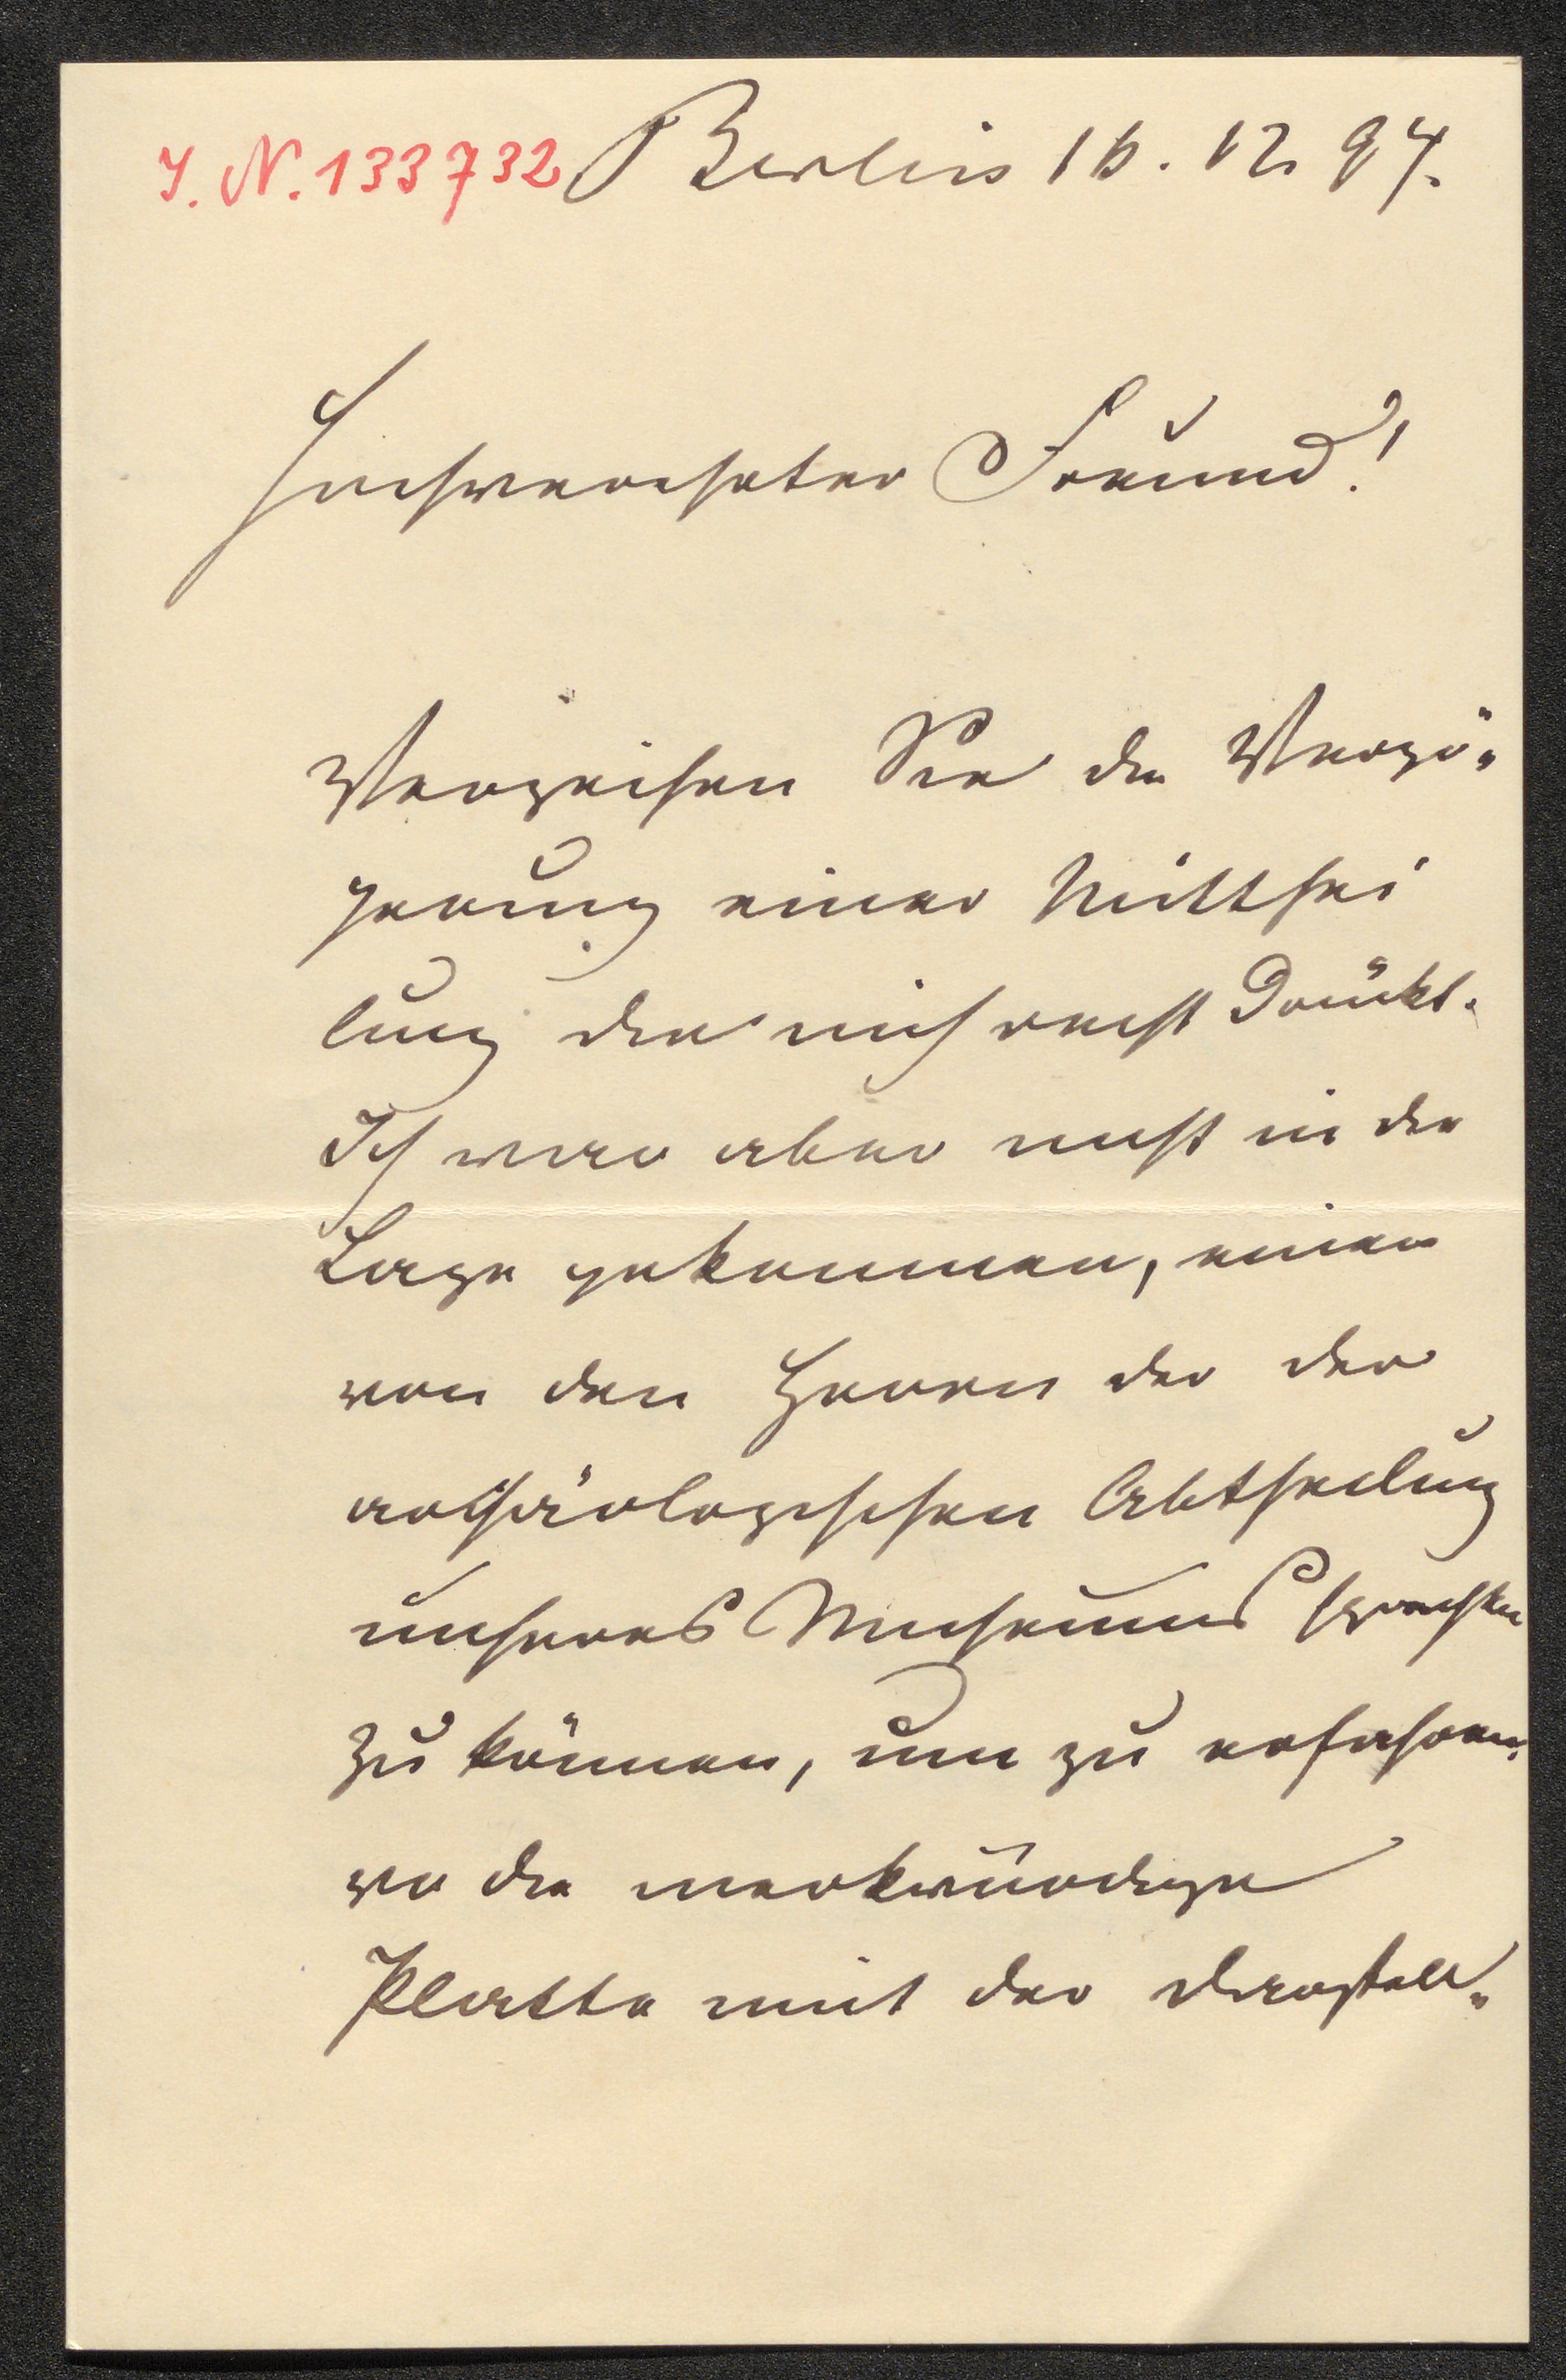 I. N. 133732 Berlin 16. 12. 94.
Hochverehrter Freund!
Verzeihen Sie die Verzö-
gerung einer Mitthei
lung die mich recht drückt.
Ich war aber nicht in die
Lage gekommen, einen
von den Herren der der
archäologischen Abtheilung
unseres Museums sprechen
zu können, um zu erfahren,
wo die merkwürdige
Platte mit der Darstell-